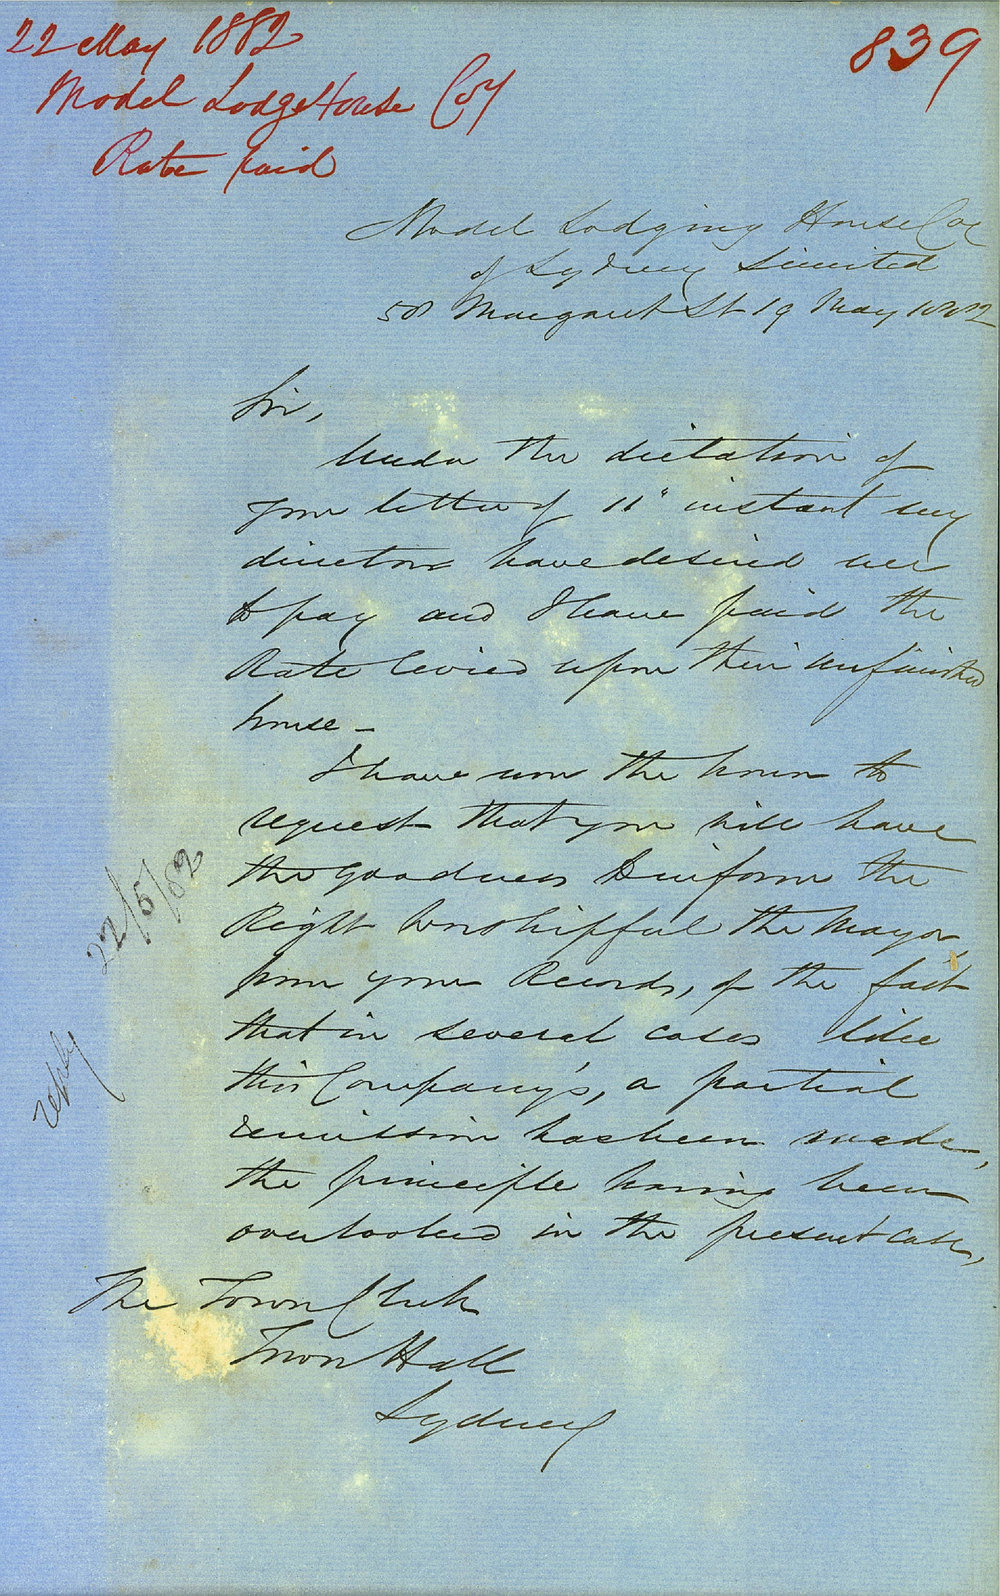 22 May 1882
839
Model LodgeHouse Coy
Rate paid
Model Lodging House Coy
of Sydney Limited
58 Margaret St 19 May 1882
Sir,
Under the dictation of
your letter of 11" instant my
directors have desired me
to pay and I have paid the
Rate levied upon their unfinished
house –
I have now the honor to
request that you will have
the goodness to inform the
Right Worshipful the Mayor,
from your Records, of the fact
that in several cases like
this Company's, a partial
remission has been made,
the principle having been
overlooked in the present case,
The Town Clerk
Town Hall
Sydney
22/5/82
reply